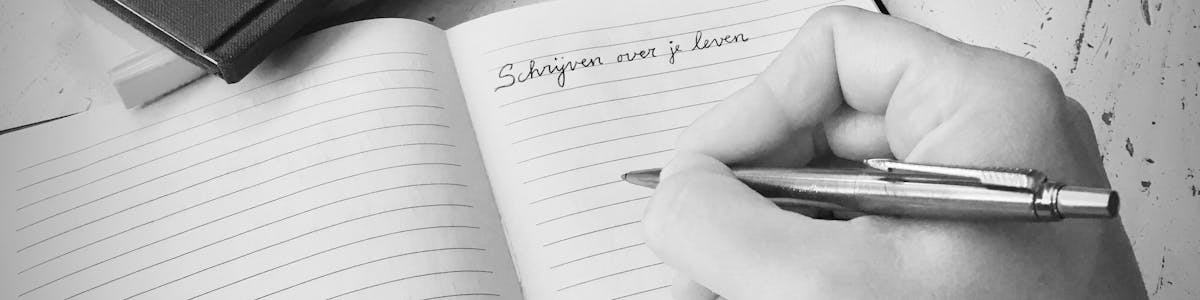 Schrijven over je leven